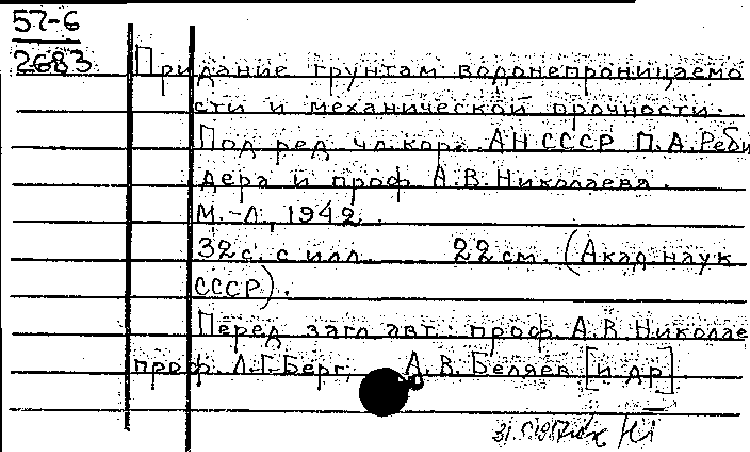 57-6
2683
Придание грунтам водонепроницаемо
сти и механической прочности.
Под ред. чл.-корр. АН СССР П.А. Реби
дера и проф. А.В. Николаева.
М.-Л., 1942.
32 с. с илл. 22 см. (Акад. наук
СССР).
Перед загл. авт.: проф. А.В. Николае
проф. Л.Г. Берг, А.В. Беляев [и др]